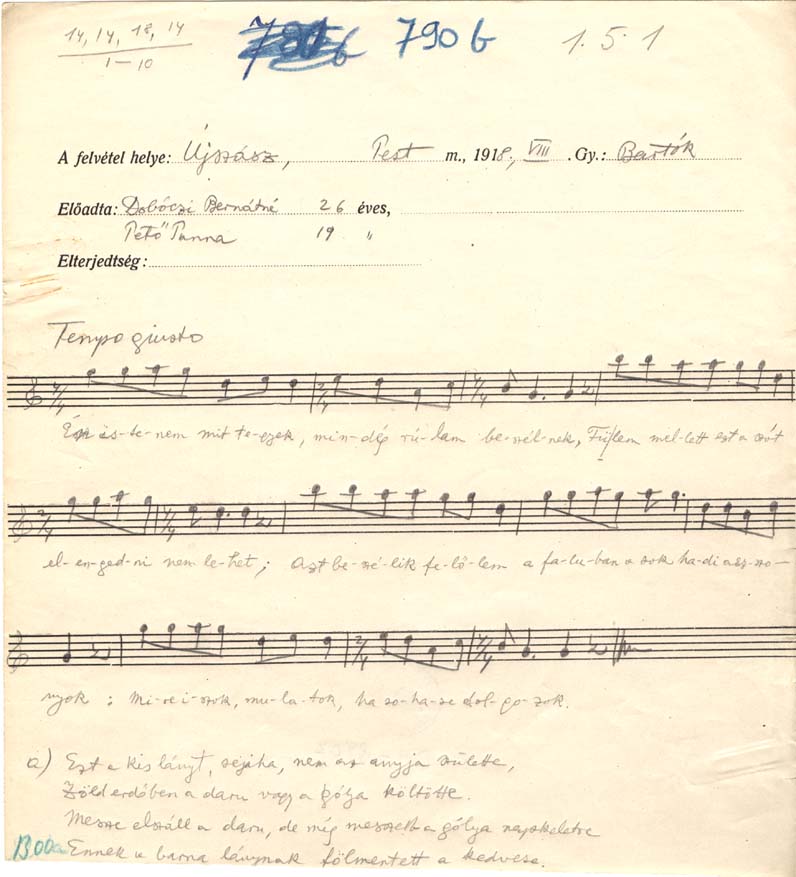 14, 14, 18, 14
1-10
790 b
1. 5. 1
A felvétel helye: Újszász, Pest m., 1918, VIII .Gy.: Bartók
Előadta: Dobóczi Bernátné 26 éves,
Pető Panna 19 "
Elterjedtség:
Tempo giusto
4/4 2/4 4/4
Én is-te-nem mit te-gyek, min-dég rú-lam be-szél-nek, Fülem mel-lett ezt a szót
2/4 4/4
el-en-ged-ni nem le-het; Azt be-szé-lik fe-lő-lem a fa-lu-ban a sok ha-di asz-szo-
2/4 4/4
nyok; Mi-re i-szok, mu-la-tok, ha so-ha-se dol-go-zok.
a) Ezt a kis lányt, sejaha, nem az anyja születte,
Zöld erdőben a daru vagy a gólya költötte.
Messze elszáll a daru, de még messzebb a gólya napkeletre
Ennek a barna lánynak fölmentett a kedvese.